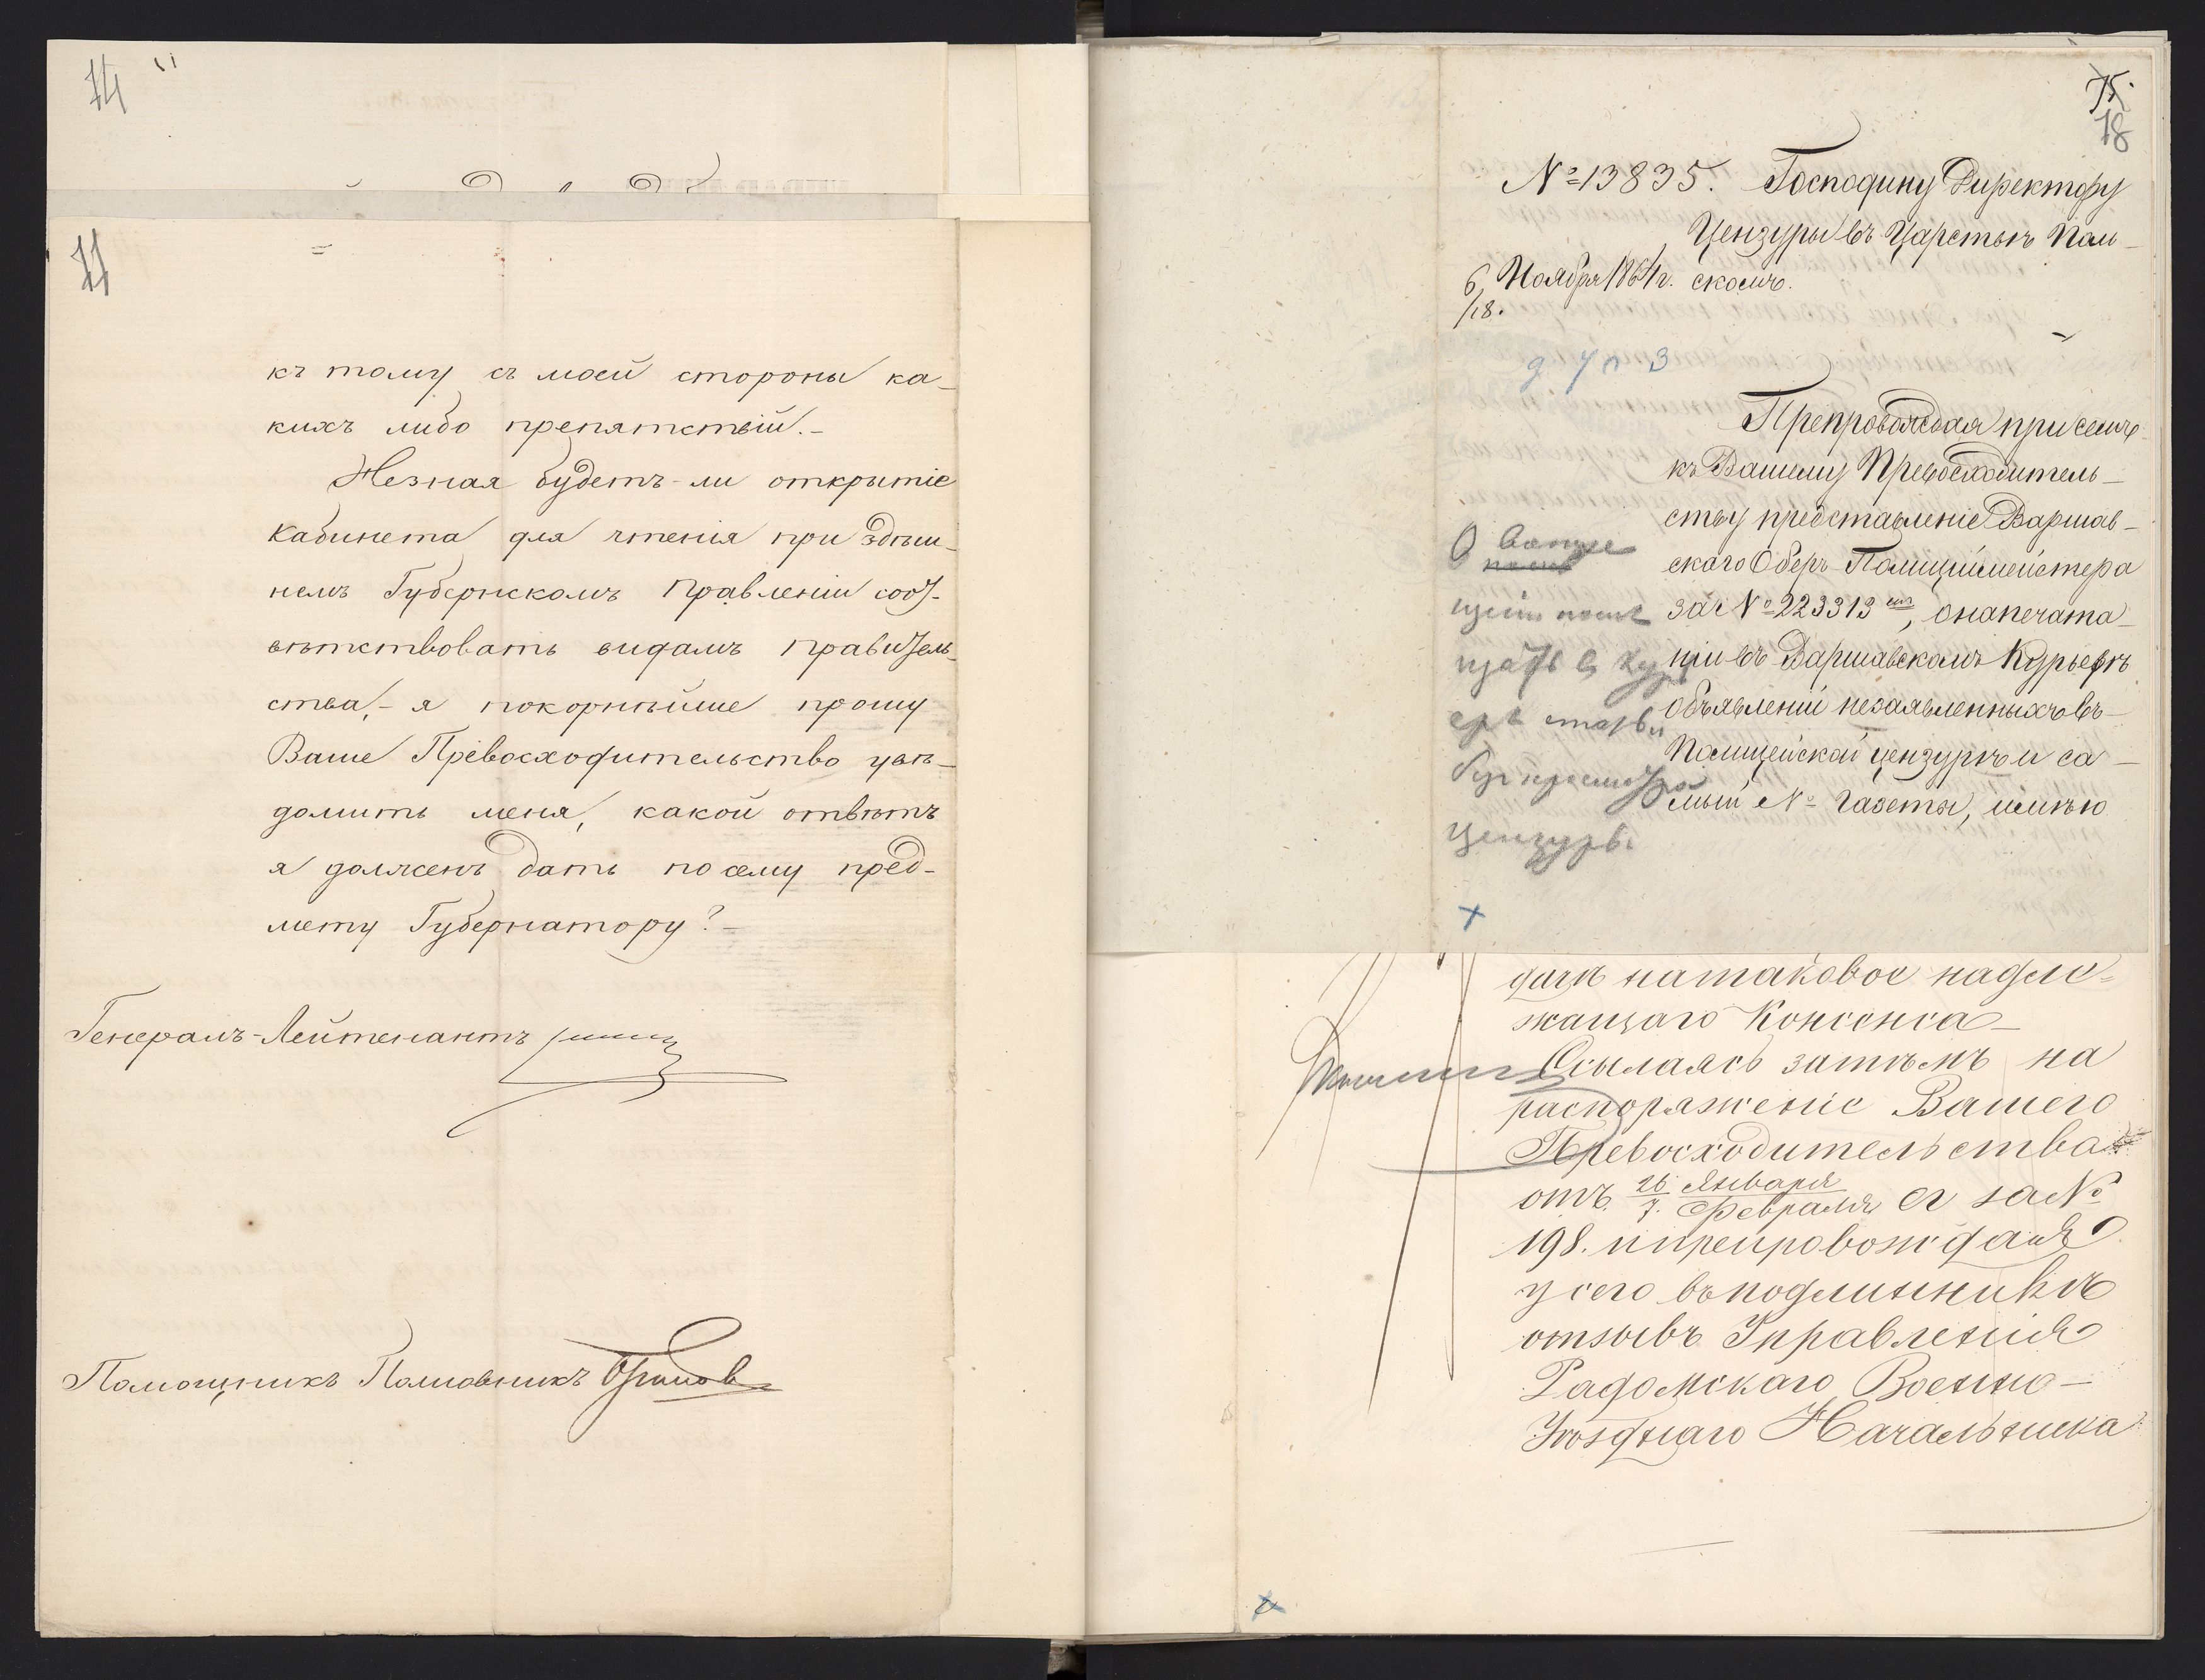 14
11
къ тому съ моей стороны ка-
кихъ либо препятствій.-
Незная будетъ-ли открытіе
кабинета для чтенія при здѣш-
немъ Губернскомъ Правленіи соот-
вѣтствовать видамъ Правитель-
ства,- я покорнѣйше прошу
Ваше Превосходительство увѣ-
домить меня, какой отвѣтъ
я долженъ дать по сему пред-
мету Губернатору?-
Генералъ-Лейтенантъ
Помощникъ Полковникъ
75.
18
№ 13835. Господину Директору
Цензуры въ Царствѣ Поль-
6/18. Ноября 1864 г. скомъ.
Препровождая при семъ
къ Вашему Превосходитель-
ству представленіе Варшав-
скаго Оберъ-Полицiймейстера
за № 223313, о напечата-
ніи въ Варшавскомъ Курьерѣ
объявленій незаявленныхъ въ
Полицейской цензурѣ и са-
мый № газеты, имѣю
цензуры
дачѣ на таковое надле-
жащаго Консенса-
Ссылаясь затѣмъ на
распоряженіе Вашего
Превосходительства
отъ 26 Января / 7 Февраля за №
198. и препровождая
у сего въ подлинникѣ
отзывъ Управленія
Радомскаго Военно-
Уѣзднаго Начальника